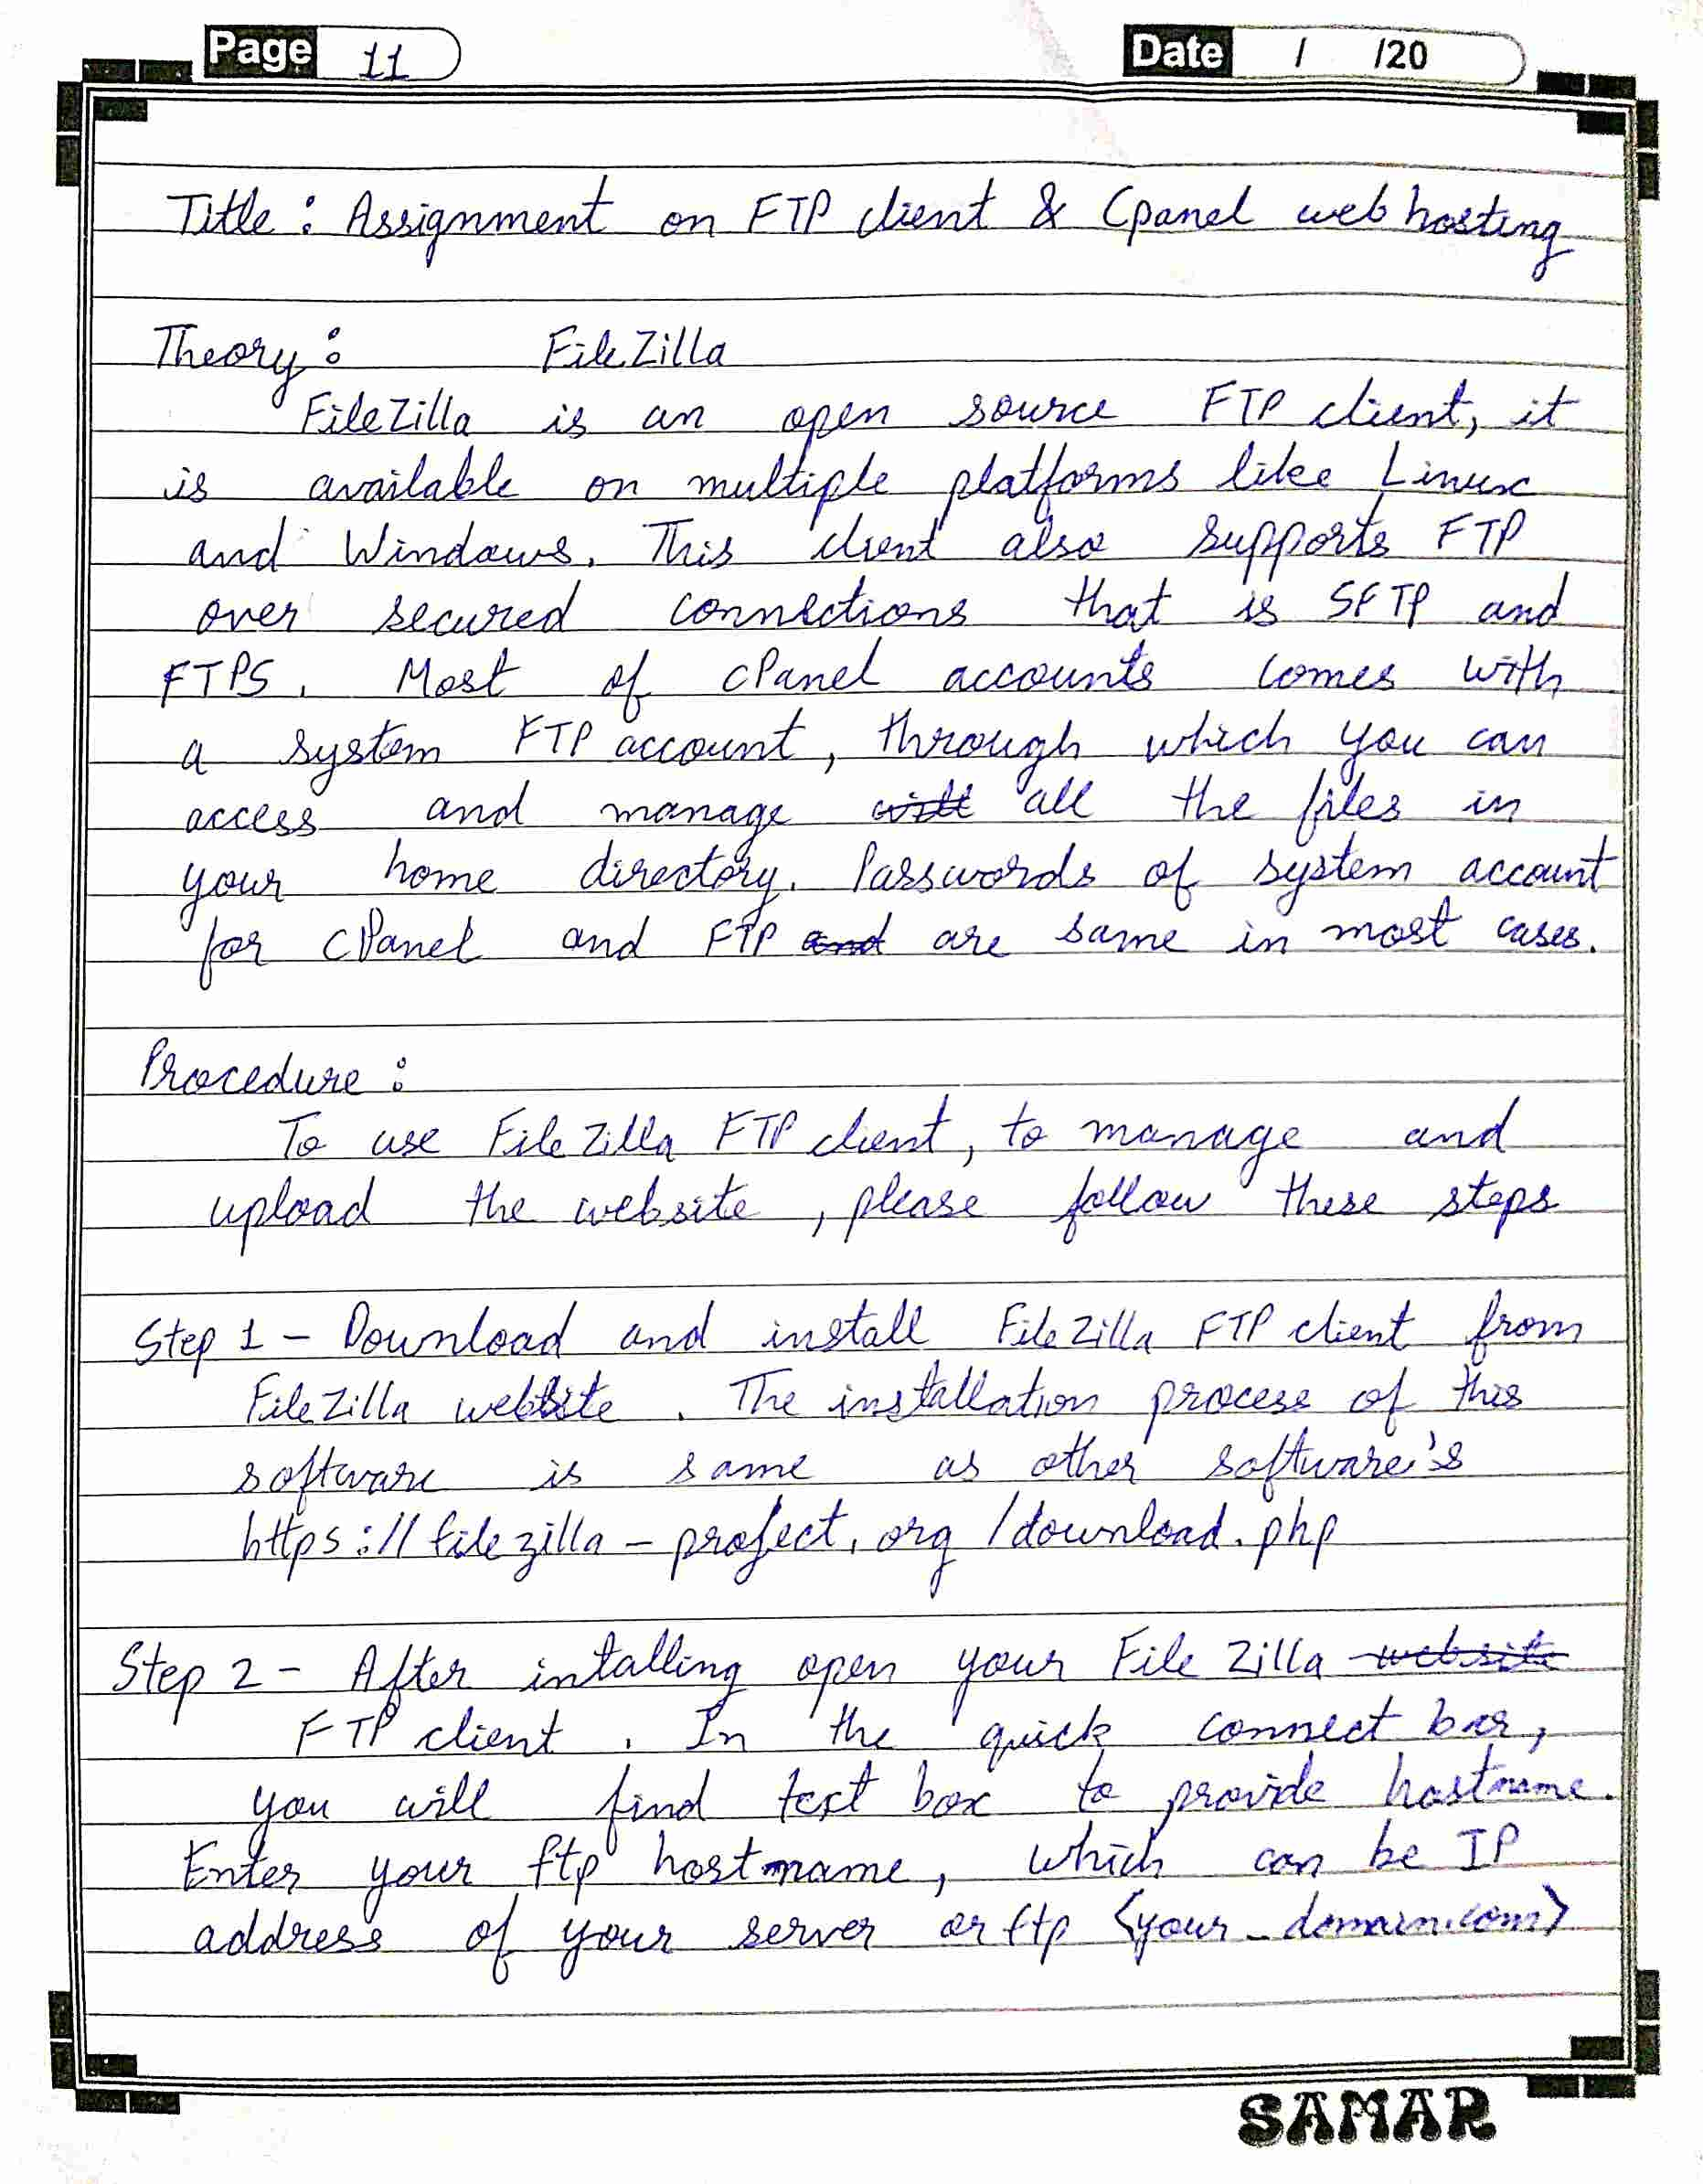 Page 11
Date / /20
Title : Assignment on FTP client & Cpanel web hosting
Theory : FileZilla
FileZilla is an open source FTP client, it
is available on multiple platforms like Linux
and Windows. This client also supports FTP
over secured connections that is SFTP and
FTPS. Most of cPanel accounts comes with
a system FTP account, through which you can
access and manage all the files in
your home directory. Passwords of system account
for cPanel and FTP are same in most cases.
Procedure :
To use FileZilla FTP client, to manage and
upload the website, please follow these steps
Step 1 - Download and install FileZilla FTP client from
FileZilla website. The installation process of this
software is same as other software's
https://filezilla-project.org/download.php
Step 2 - After intalling open your File Zilla website
FTP client. In the quick connect bar,
you will find text box to provide hostname.
Enter your ftp hostname, which can be IP
address of your server or ftp <your_domain.com>
SAMAR